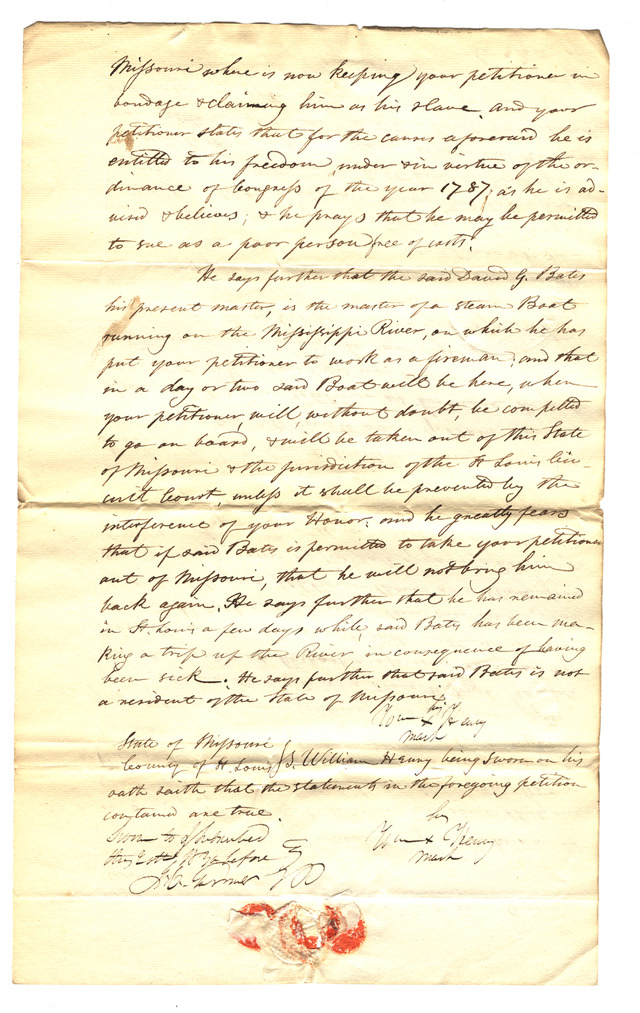 Missouri where is now keeping your petitioner in
bondage & claiming him as his slave. And your
petitioner states that for the causes aforesaid he is
entitled to his freedom under & in virtue of the or-
dinance of Congress of the year 1787, as he is ad-
vised & believes; & he prays that he may be permitted
to sue as a poor person free of costs.
He says further that the said David G. Bates
his present master, is the master of a Steam Boat
running on the Mississippi River, on which he has
put your petitioner to work as a fireman; and that
in a day or two said Boat will be here, when
your petitioner, will, without doubt, be compelled
to go on board, & will be taken out of this State
of Missouri & the jurisdiction of the St Louis Cir-
cuit Court, unless it shall be prevented by the
interference of your Honor: and he greatly fears
that if said Bates is permitted to take your petitioner
out of Missouri, that he will not bring him
back again. He says further that he has remained
in St. Louis a few days while said Bates has been ma-
king a trip up the River in consequence of having
been sick. He says further that said Bates is not
a resident of the State of Missouri
his
Wm x Henry
mark
State of Missouri
County of St Louis } S. William Henry being sworn on his
oath saith that the statements in the foregoing petition
contained are true.
Sworn to & subscribed
before
his
Wm x Henry
mark